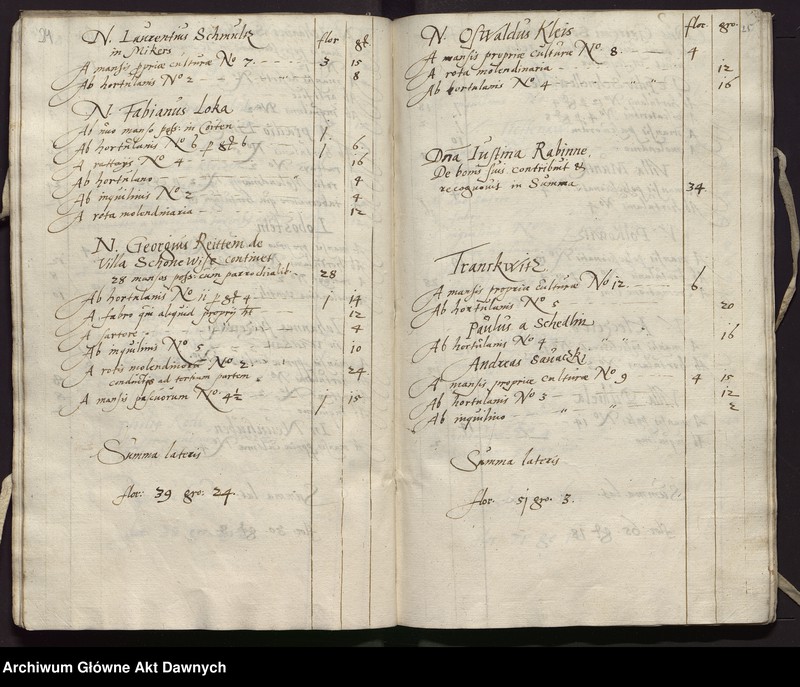 24
N. Laurentius Schmultz flor gl
in Mikers
A mansis ppriae culturae No 7. 3 15
Ab hortulanis No 2 8
N. Fabianus Loka
Ab uno manso poss: in Corten 1
Ab hortulanis No 6 p gl 6 1 6
A rattays No 4 16
Ab hortulano 4
Ab inquilinis No 2 4
A rota molendinaria 12
N. Georgius Reittein de
Villa Schonewise continet
28 mansos poss: cum parrochialib. 28
Ab hortulanis No 11 p gl 4 1 14
A fabro qui aliquid proprij ht 12
A sartore 4
Ab inquilinis No 5 10
A rotis molendinorū No 2. 24
ad tertiam partem
A mansis pascuorum No 4½ 1 15
Summa lateris
flor: 39 gro: 24.
25
N. Oswaldus Kleis flor. gro.
A mansis propriae culturae No. 8. 4
A rota molendinaria 12
Ab hortulanis No 4 16
Dña Iustina Rabinne.
De bonis suis contribut et
recognovit in Summa 34
Tranckwitz
A mansis propriae culturae No 12. 6.
Ab hortulanis No 5 20
Paulus a Schealin
Ab hortulanis No 4 16
Andreas Savaczki
A mansis propriae culturae No 9 4 15
Ab hortulanis No 3 12
Ab inquilino 2
Summa lateris
flor. 51 gro. 3.
Archiwum Główne Akt Dawnych